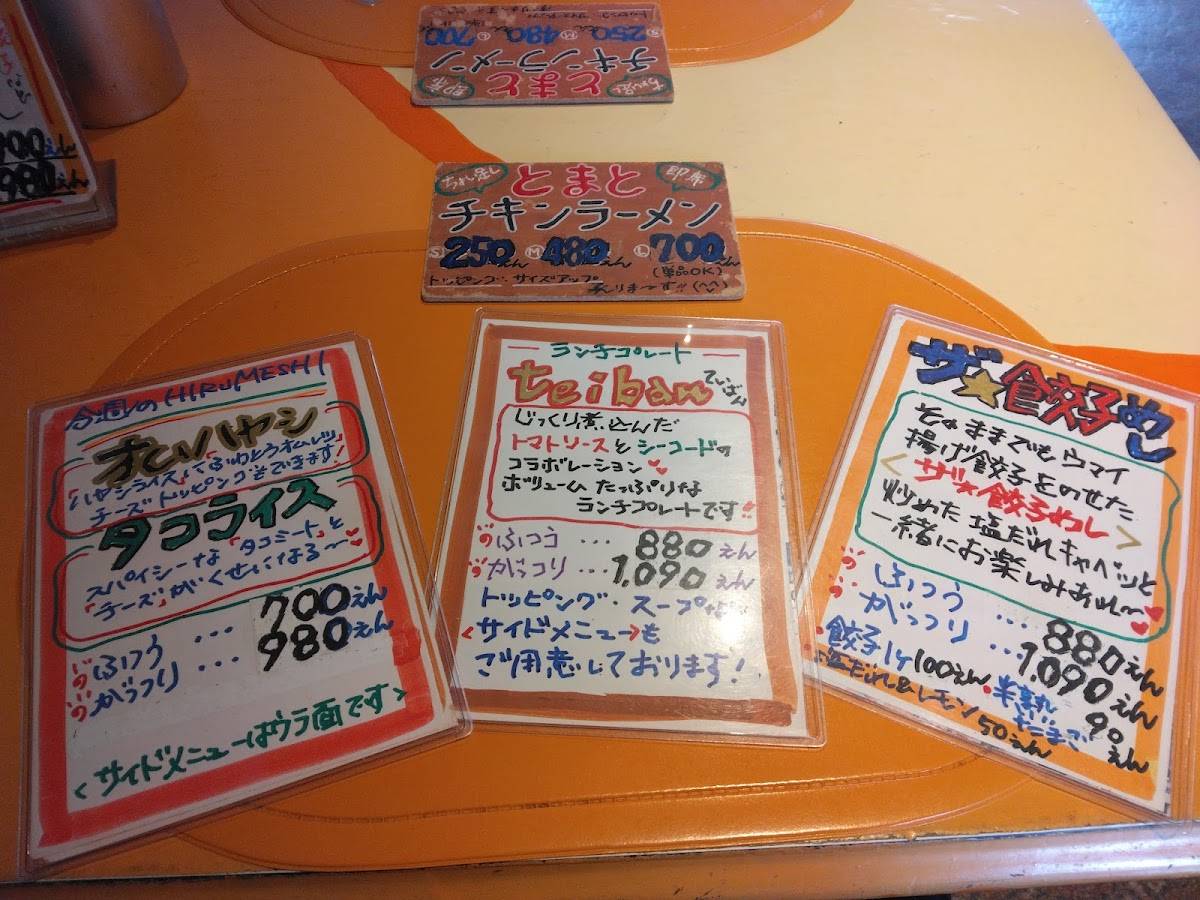 250 480 700
チキンラーメン
とまと
即席
ちょい足し
00えん
980えん
ちょい足し
とまと
即席
チキンラーメン
S 250えん M 480えん L 700えん
(単品OK)
トッピング・サイズアップ
今週のHIRUMESHI
オムハヤシ
「ハヤシライス」に「ふわとろオムレツ」
チーズトッピングもできます!
タコライス
スパイシーな「タコミート」と
「チーズ」がくせいになる〜
ふつう … 700えん
がっつり … 980えん
<サイドメニューはウラ面です>
ランチプレート
teiban
てぃばん
じっくり煮込んだ
トマトソースとシーフードの
コラボレーション
ボリュームたっぷりな
ランチプレートです!!
ふつう … 880えん
がっつり … 1,090えん
トッピング・スープなど
<サイドメニュー>も
ご用意しております!
ザ☆餃子めし
そのままでもウマイ
揚げ餃子をのせた
<ザ☆餃子めし>
炒めた塩だれキャベツと
一緒にお楽しみあれ〜
ふつう … 880えん
がっつり … 1,090えん
・餃子1ヶ100えん ・半熟たまご 90えん
・塩だれ&レモン50えん